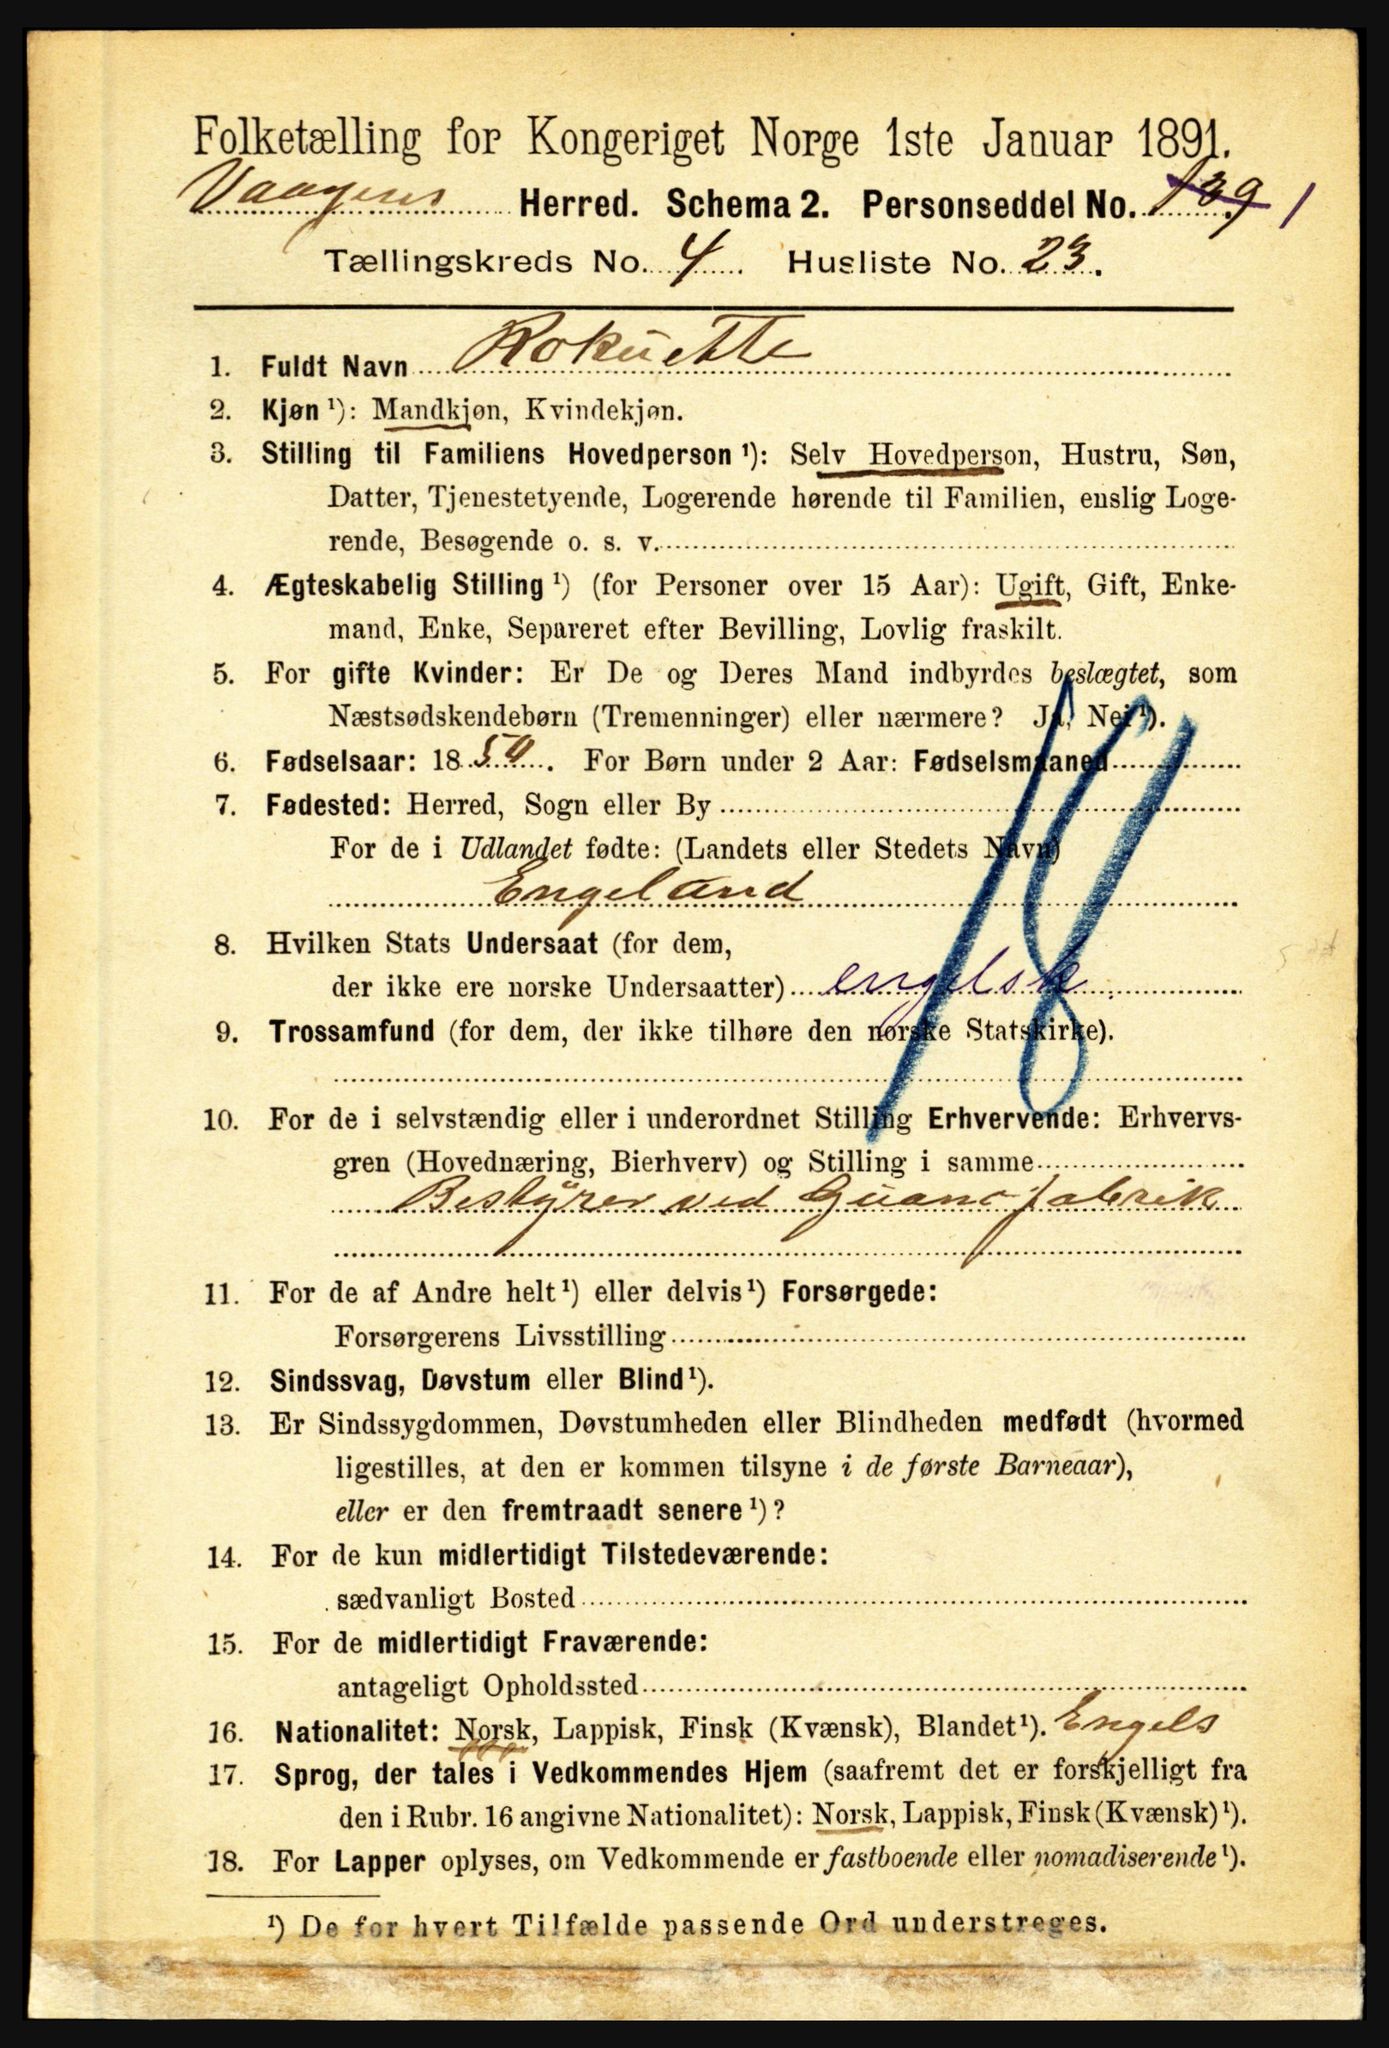 Folketælling for Kongeriget Norge 1ste Januar 1891.
Vaagens Herred. Schema 2. Personseddel No. 139 1
Tællingskreds No. 4 Husliste No. 23.
1. Fuldt Navn Rokuette
2. Kjøn ¹): Mandkjøn, Kvindekjøn.
3. Stilling til Familiens Hovedperson ¹): Selv Hovedperson, Hustru, Søn,
Datter, Tjenestetyende, Logerende hørende til Familien, enslig Loge-
rende, Besøgende o. s. v.
4. Ægteskabelig Stilling ¹) (for Personer over 15 Aar): Ugift, Gift, Enke-
mand, Enke, Separeret efter Bevilling, Lovlig fraskilt.
5. For gifte Kvinder: Er De og Deres Mand indbyrdes beslægtet, som
Næstsødskendebørn (Tremenninger) eller nærmere? Ja, Nei ¹).
6. Fødselsaar: 1850. For Børn under 2 Aar: Fødselsmaaned
7. Fødested: Herred, Sogn eller By
For de i Udlandet fødte: (Landets eller Stedets Navn)
Engeland
8. Hvilken Stats Undersaat (for dem,
der ikke ere norske Undersaatter) engelsk
9. Trossamfund (for dem, der ikke tilhøre den norske Statskirke).
18
10. For de i selvstændig eller i underordnet Stilling Erhvervende: Erhvervs-
gren (Hovednæring, Bierhverv) og Stilling i samme
Bestyrer ved Guanofabrik
11. For de af Andre helt ¹) eller delvis ¹) Forsørgede:
Forsørgerens Livsstilling
12. Sindssvag, Døvstum eller Blind ¹).
13. Er Sindssygdommen, Døvstumheden eller Blindheden medfødt (hvormed
ligestilles, at den er kommen tilsyne i de første Barneaar),
eller er den fremtraadt senere ¹)?
14. For de kun midlertidigt Tilstedeværende:
sædvanligt Bosted
15. For de midlertidigt Fraværende:
antageligt Opholdssted
16. Nationalitet: Norsk, Lappisk, Finsk (Kvænsk), Blandet ¹). Engels
17. Sprog, der tales i Vedkommendes Hjem (saafremt det er forskjelligt fra
den i Rubr. 16 angivne Nationalitet): Norsk, Lappisk, Finsk (Kvænsk) ¹).
18. For Lapper oplyses, om Vedkommende er fastboende eller nomadiserende ¹).
¹) De for hvert Tilfælde passende Ord understreges.